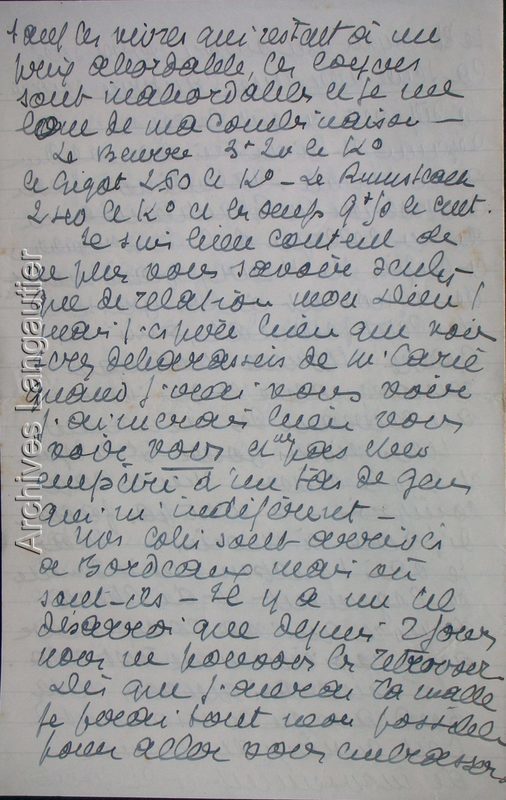 sauf les vivres qui restent à un
prix abordable, les
sont inabordables et je me
loue de ma combinaison —
Le Beurre 3f 20 le Ko
le Gigot 2.50 le Ko — Le Rumsteack
2 le Ko et les oeufs le cent.
Je suis bien content de
ne plus vous savoir seules
que de relation mon Dieu !
mais j'espère bien que vous
serez débarassés de m. Carié
quand j'irai vous voir
j'aimerais bien vous
voir vous et ne pas être
empêtré d'un tas de gens
qui m'indiffèrent —
Nos colis sont arrivés
à Bordeaux mais où
sont-ils — Il y a un tel
désarroi que depuis 2 jours
nous ne pouvons les retrouver
Dès que j'aurai la malle
je ferai tout mon possible
pour aller vous embrasser
Archives Langautier